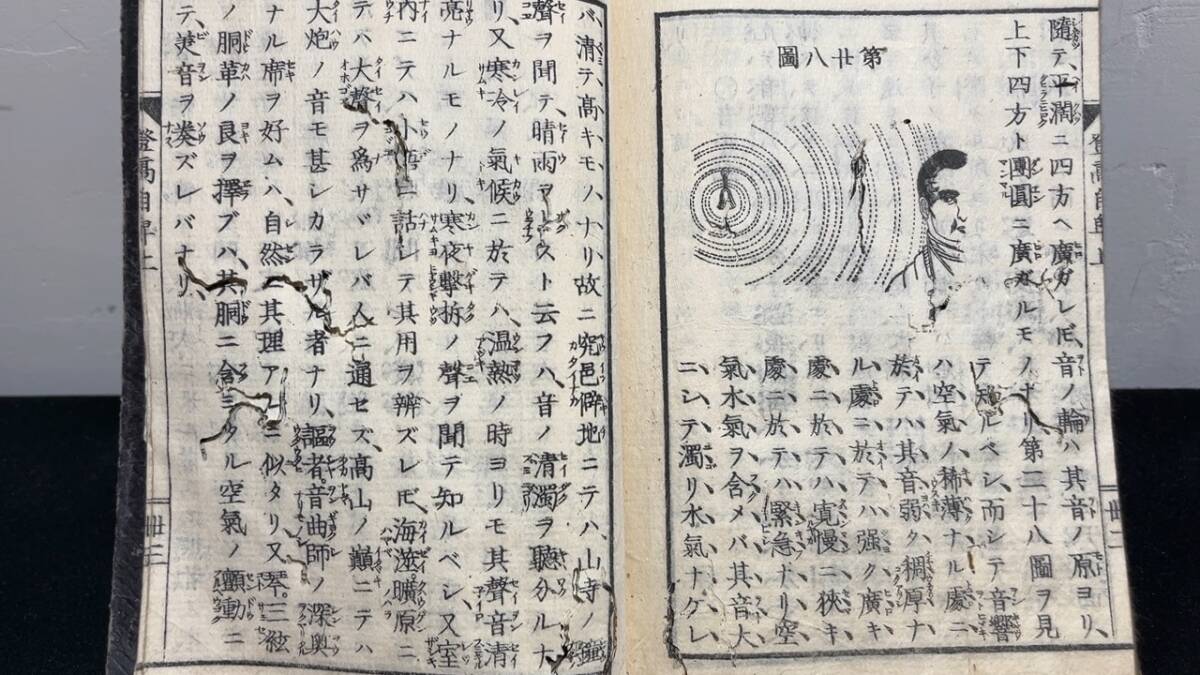 隨テ、平濶ニ四方ヘ廣ガレ𪜈、音ノ輪ハ其音ノ原ヨリ、
上下四方ト團圓ニ廣ガルモノナリ第二十八圖ヲ見
第廿八圖
テ知ルベシ、而シテ音響
ハ、空氣ノ稀薄ナル處ニ
於テハ其音弱ク、稠厚ナ
ル處ニ於テハ强ク、廣キ
處ニ於テハ寛慢ニ、狹キ
處ニ於テハ緊急ナリ、空
氣水氣ヲ含メバ、其音大
ニシテ濁リ、水氣ナケレ、
登高自卑 上
卌二
バ、清テ、高キモノナリ、故ニ究邑僻地ニテハ、山寺ノ鐘
聲ヲ聞テ、晴雨ヲスト云フハ、音ノ清濁ヲ聽分ルナ
リ、又寒冷ノ氣候ニ於テハ、温熱ノ時ヨリモ其聲音清
亮ナルモノナリ、寒夜擊柝ノ聲ヲ聞テ知ルベシ、又室
内ニテハ小語ニ話シテ其用ヲ辨ズレ𪜈、海邊曠原ニ
テハ大聲ヲ爲サヾレバ人ニ通セズ、高山ノ巓ニテハ
大炮ノ音モ甚シカラザル者ナリ、謳者音曲師ノ深奥
ナル席ヲ好ムハ、自然ニ其理アルニ似タリ、又琴三絃
ノ胴革ノ良ヲ擇ブハ、其胴ニ含ミウル空氣ノ顫動ニ
テ、美音ヲ發ズレバナリ、
登高自卑 上
卌三